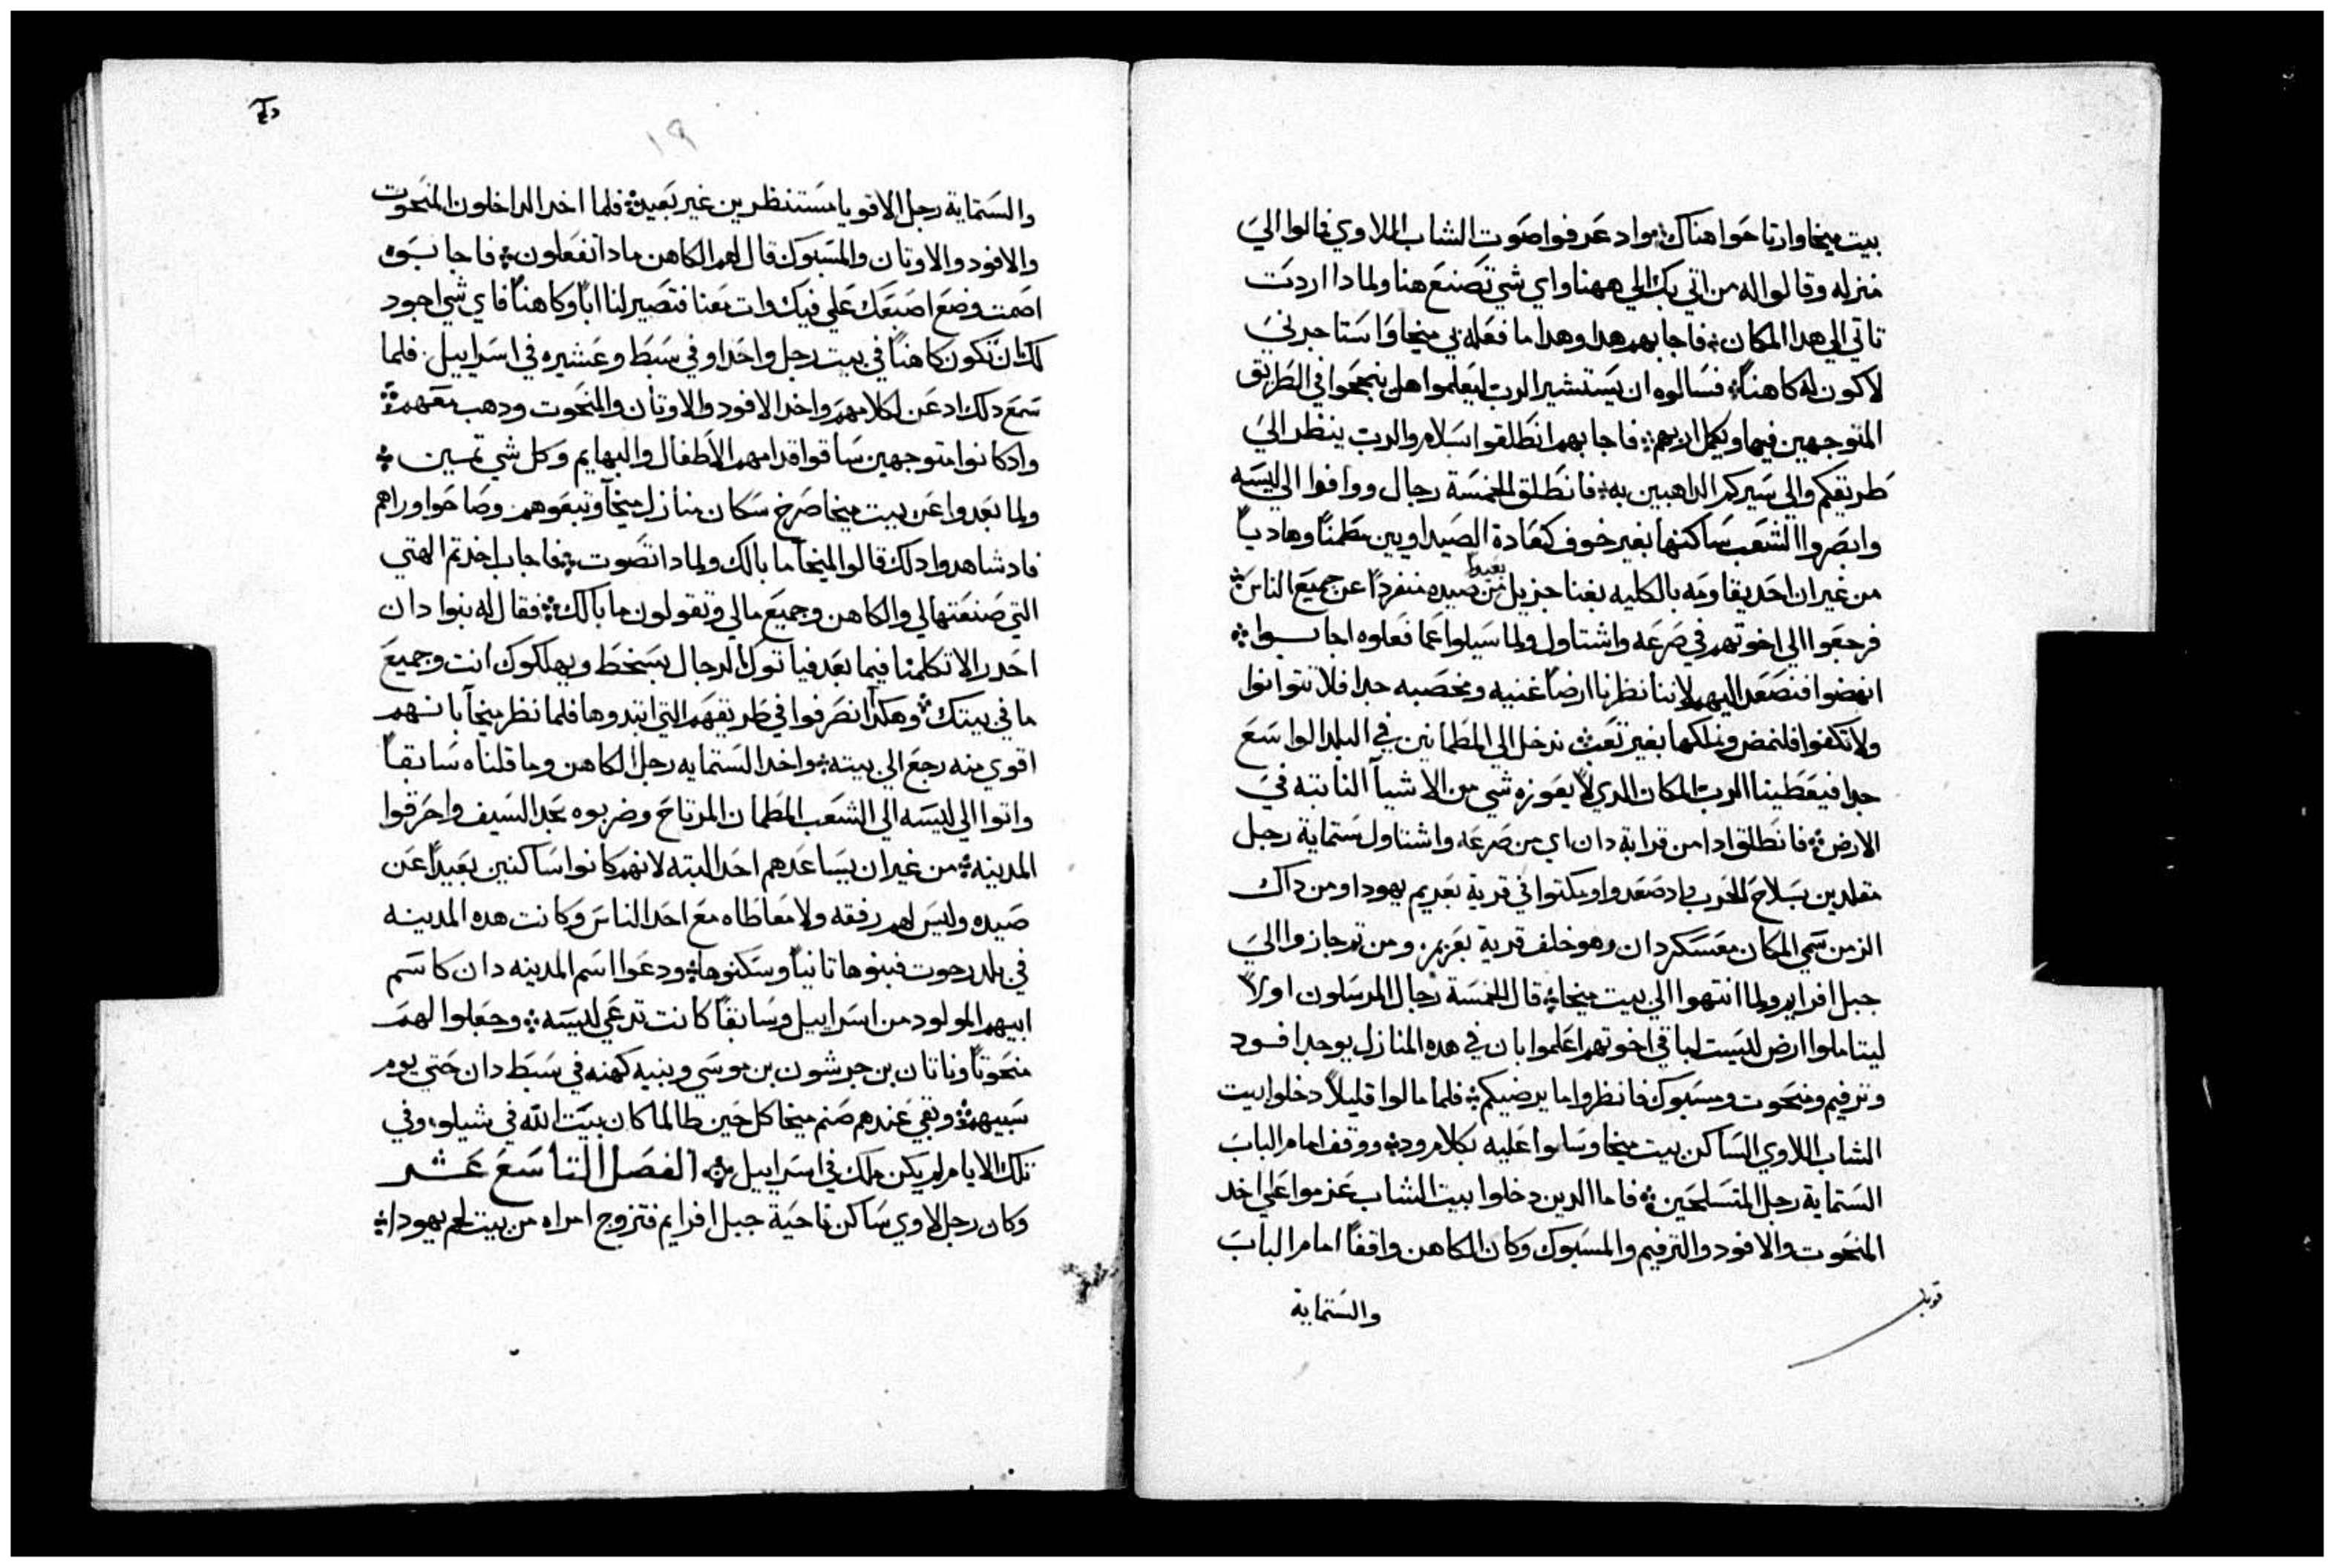 بيت ميخا وارتاحوا هناك ۞ واد عرفوا صوت الشاب اللاوي فالوا الي
منزله وقالوا له من اتي بك الي ههنا واي شي تصنع هنا ولمادا اردت
تاتي الي هدا المكان ۞ فاجابهم هدا وهدا ما فعله بي ميخا واستاجرني
لاكون له كاهناً ۞ فسالوه ان يستشير الرب ليعلموا هل ينجحوا في الطريق
المتوجهين فيها ويكمل اربهم ۞ فاجابهم انطلقوا بسلام والرب ينظر الي
طريقكم والي سيركم الداهبين به ۞ فانطلق الخمسة رجال ووافوا الي ليسه
وابصروا الشعب ساكنها بغير خوف كعادة الصيداويين مطمناً وهادياً
من غير ان احد يقاومه بالكليه بغنا جزيل بعيداً من صيده منفرداً عن جميع الناس ۞
فرجعوا الي اخوتهم في صرعه واشتاول ولما سيلوا عما فعلوه اجابوا ۞
انهضوا فنصعد اليهم لاننا نظرنا ارضاً غنيه ومخصبه جدا فلا تتوانوا
ولا تكفوا فلنمض ونملكها بغير تعب ۞ ندخل الي المطمانين في البلد الواسع
جدا فيعطينا الرب المكان الدي لا يعوزه شي من الاشيآ النابته في
الارض ۞ فانطلق ادا من قرابة دان اي من صرعه واشتاول ستماية رجل
مقلدين بسلاح الحرب ۞ واد صعدوا ومكتوا في قرية يعريم يهودا ومن داك
الزمن سمي المكان معسكر دان وهو خلف قرية يعريم ۞ ومن تم جازوا الي
جبل افرايم ولما انتهوا الي بيت ميخا ۞ قال الخمسة رجال المرسلون اولاً
ليتاملوا ارض ليست لباقي اخوتهم اعلموا بان في هده المنازل يوجد افود
وترفيم ومنحوت ومسبوك فانظروا ما يرضيكم ۞ فلما مالوا قليلاً دخلوا بيت
الشاب اللاوي الساكن بيت ميخا وسلموا عليه بكلام ود ۞ ووقف امام الباب
الستماية رجل المتسلحين ۞ فاما الدين دخلوا بيت الشاب عزموا علي اخد
المنحوت والافود والترفيم والمسبوك وكان الكاهن واقفاً امام الباب
والستماية
قوبل
١٩
والستماية رجل الاقويا مستنظرين غير بعيد ۞ فلما اخد الداخلون المنحوت
والافود والاوتان والمسبوك قال لهم الكاهن مادا تفعلون ۞ فاجابوه
اصمت وضع اصبعك علي فيك وات معنا فتصير لنا اباً وكاهناً فاي شي اجود
لك ان تكون كاهناً في بيت رجل واحد او في سبط وعشيره في اسراييل ۞ فلما
سمع دلك ادعن لكلامهم واخد الافود والاوتان والمنحوت ودهب معهم ۞
واد كانوا متوجهين ساقوا قدامهم الاطفال والبهايم وكل شي تمين ۞
ولما بعدوا عن بيت ميخا صرخ سكان منازل ميخآ وتبعوهم وصاحوا وراهم
فاد شاهدوا دلك قالوا لميخا ما بالك ولمادا تصوت ۞ فاجاب اخدتم الهتي
التي صنعتها لي والكاهن وجميع مالي وتقولون ما بالك ۞ فقال له بنوا دان
احدر الا تكلمنا فيما بعد فياتوك الرجال بسخط ويهلكوك انت وجميع
ما في بيتك ۞ وهكدا انصرفوا في طريقهم التي ابتدوها فلما نظر ميخآ بانهم
اقوي منه رجع الي بيته ۞ واخد الستمايه رجل الكاهن وما قلناه سابقاً
واتوا الي ليسه الي الشعب المطمان المرتاح وضربوه بحد السيف واحرقوا
المدينه ۞ من غير ان يساعدهم احد البته لانهم كانوا ساكنين بعيداً عن
صيده وليس لهم رفقه ولا معاطاه مع احد الناس وكانت هده المدينه
في بلد رحوب فبنوها تانياً وسكنوها ۞ ودعوا اسم المدينه دان كاسم
ابيهم المولود من اسراييل وسابقاً كانت تدعي ليسه ۞ وجعلوا لهم
منحوتاً وناتان بن جرشون بن موسي وبنيه كهنه في سبط دان حتي يوم
سبيهم ۞ وبقي عندهم صنم ميخا كل حين طالما كان بيت الله في شيلو ۞ وفي
تلك الايام لم يكن ملك في اسراييل ۞ الفصل التاسع عشر
وكان رجل لاوي ساكن ناحية جبل افرايم فتزوج امراه من بيت لحم يهودا ۞